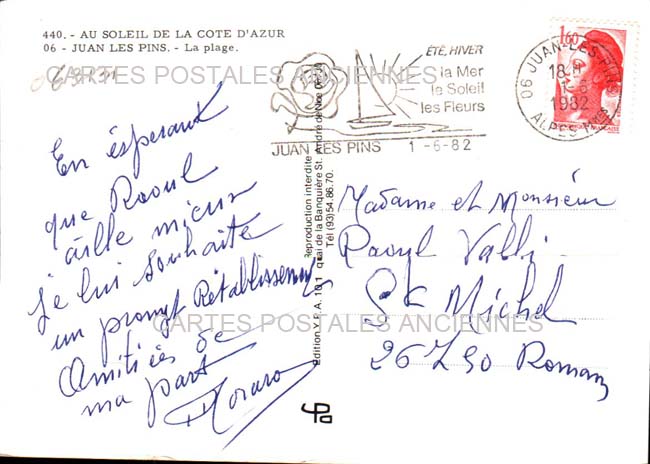 440. - AU SOLEIL DE LA COTE D'AZUR
06 - JUAN LES PINS. - La plage.
CARTES POSTALES ANCIENNES
ÉTÉ, HIVER
la Mer
le Soleil
les Fleurs
JUAN LES PINS 1-6-82
06 JUAN-LES-PINS
18 H
1-6
1982
ALPES-MMES
1,60
FRANÇAISE
En ésperant
que Raoul
aille mieux
je lui souhaite
un prompt Rétablissement
Amitiés de
ma part
Edition Y.P.A. 10 1 quai de la Banquière St. André de Nice 06
Reproduction interdite Tél (93)54.86.70.
Madame et Monsieur
Raoul Valli
St Michel
26750 Romans
CARTES POSTALES ANCIENNES